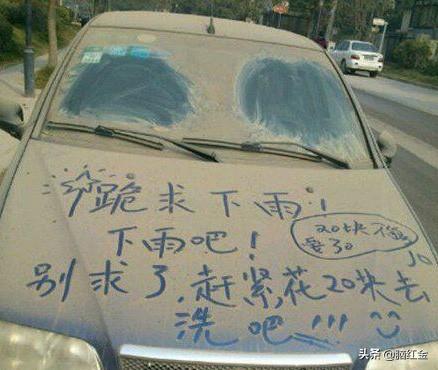 跪求下雨!
下雨吧!
20块不值
要30
别求了,赶紧花20块去
洗吧!!!
头条 @脑红金